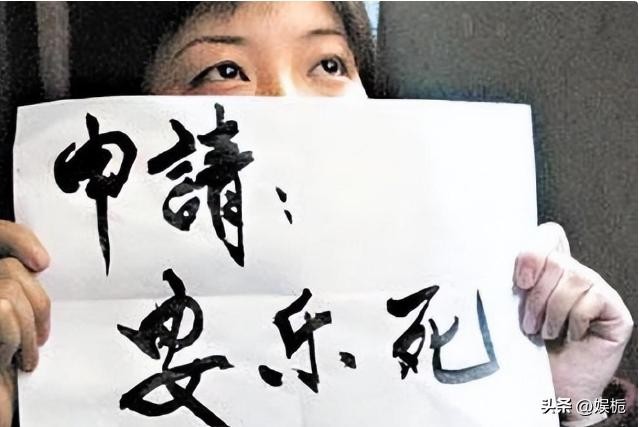 申請：
安乐死
头条 @娱栀